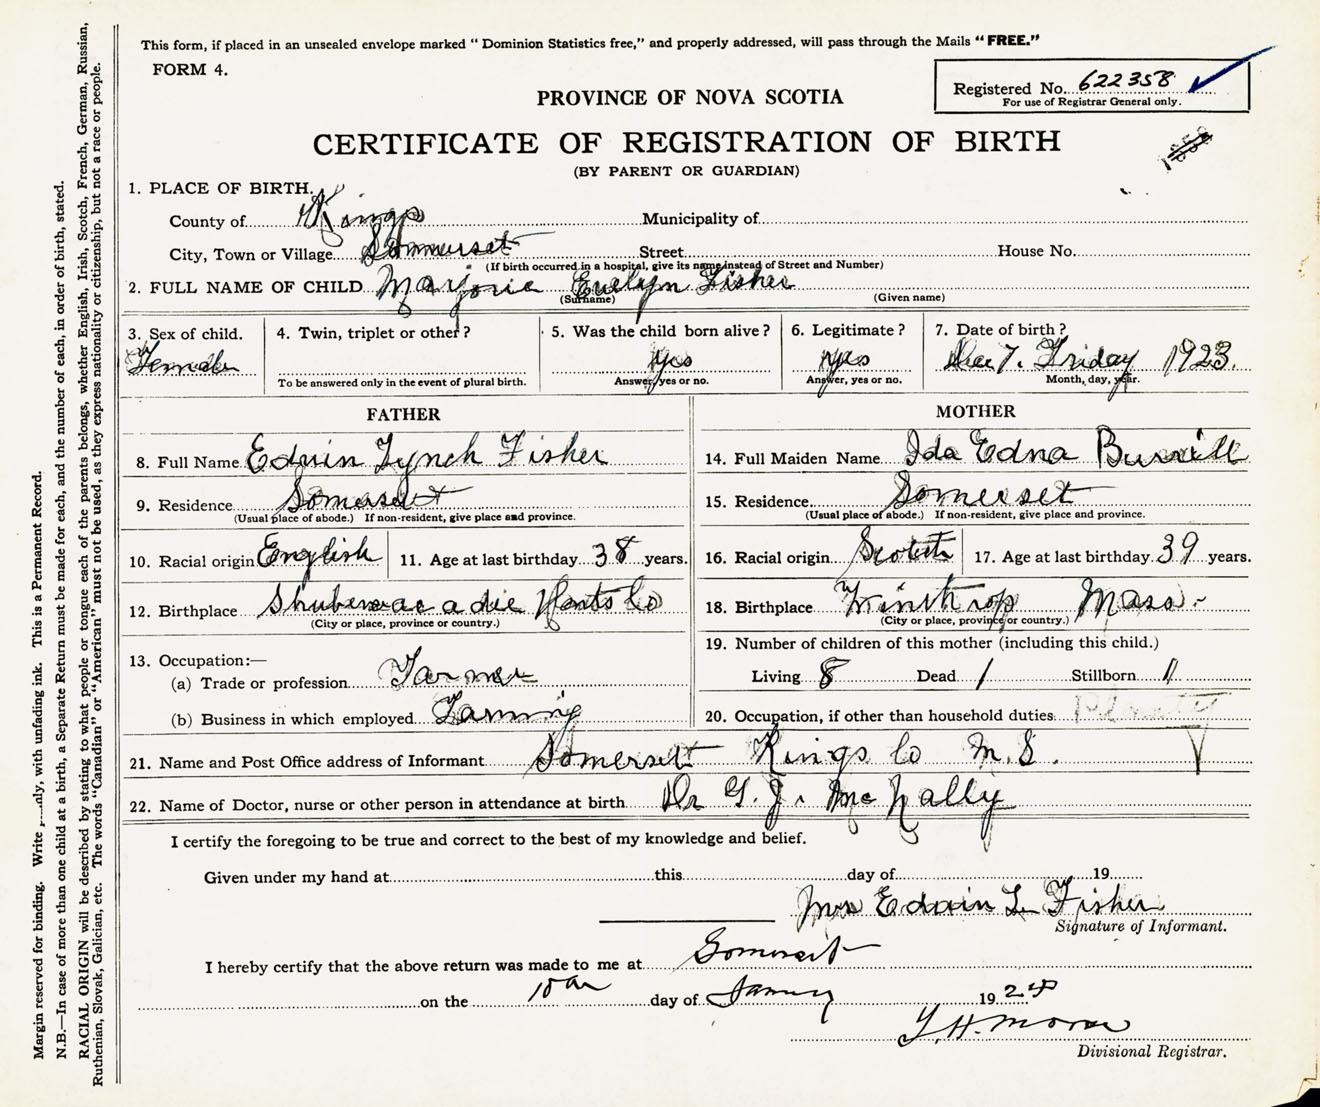 This form, if placed in an unsealed envelope marked "Dominion Statistics free," and properly addressed, will pass through the Mails "FREE."
FORM 4.
Registered No. 622358
For use of Registrar General only.
PROVINCE OF NOVA SCOTIA
CERTIFICATE OF REGISTRATION OF BIRTH
(BY PARENT OR GUARDIAN)
1. PLACE OF BIRTH.
County of Kings Municipality of
City, Town or Village Somerset Street House No.
(If birth occurred in a hospital, give its name instead of Street and Number)
2. FULL NAME OF CHILD Marjorie Evelyn Fisher
(Surname) (Given name)
3. Sex of child. 4. Twin, triplet or other? 5. Was the child born alive? 6. Legitimate? 7. Date of birth?
Female yes yes Dec 7. Friday 1923.
To be answered only in the event of plural birth. Answer, yes or no. Answer, yes or no. Month, day, year.
FATHER MOTHER
8. Full Name Edwin Lynch Fisher 14. Full Maiden Name Ida Edna Burrill
9. Residence Somerset 15. Residence Somerset
(Usual place of abode.) If non-resident, give place and province. (Usual place of abode.) If non-resident, give place and province.
10. Racial origin English 11. Age at last birthday 38 years. 16. Racial origin Scotch 17. Age at last birthday 39 years.
12. Birthplace Shubenacadie Hants Co 18. Birthplace Winthrop Mass.
(City or place, province or country.) (City or place, province or country.)
13. Occupation:— 19. Number of children of this mother (including this child.)
(a) Trade or profession Farmer Living 8 Dead 1 Stillborn
(b) Business in which employed Farming 20. Occupation, if other than household duties
21. Name and Post Office address of Informant Somerset Kings Co N.S.
22. Name of Doctor, nurse or other person in attendance at birth Dr G. J. McNally
I certify the foregoing to be true and correct to the best of my knowledge and belief.
Given under my hand at this day of 19
Mrs Edwin L Fisher
Signature of Informant.
I hereby certify that the above return was made to me at Somerset
on the 10th day of January 1924
Divisional Registrar.
Margin reserved for binding. Write with unfading ink. This is a Permanent Record.
N.B.—In case of more than one child at a birth, a Separate Return must be made for each, and the number of each, in order of birth, stated.
RACIAL ORIGIN will be described by stating to what people or tongue each of the parents belongs, whether English, Irish, Scotch, French, German, Russian,
Ruthenian, Slovak, Galician, etc. The words "Canadian" or "American" must not be used, as they express nationality or citizenship, but not a race or people.